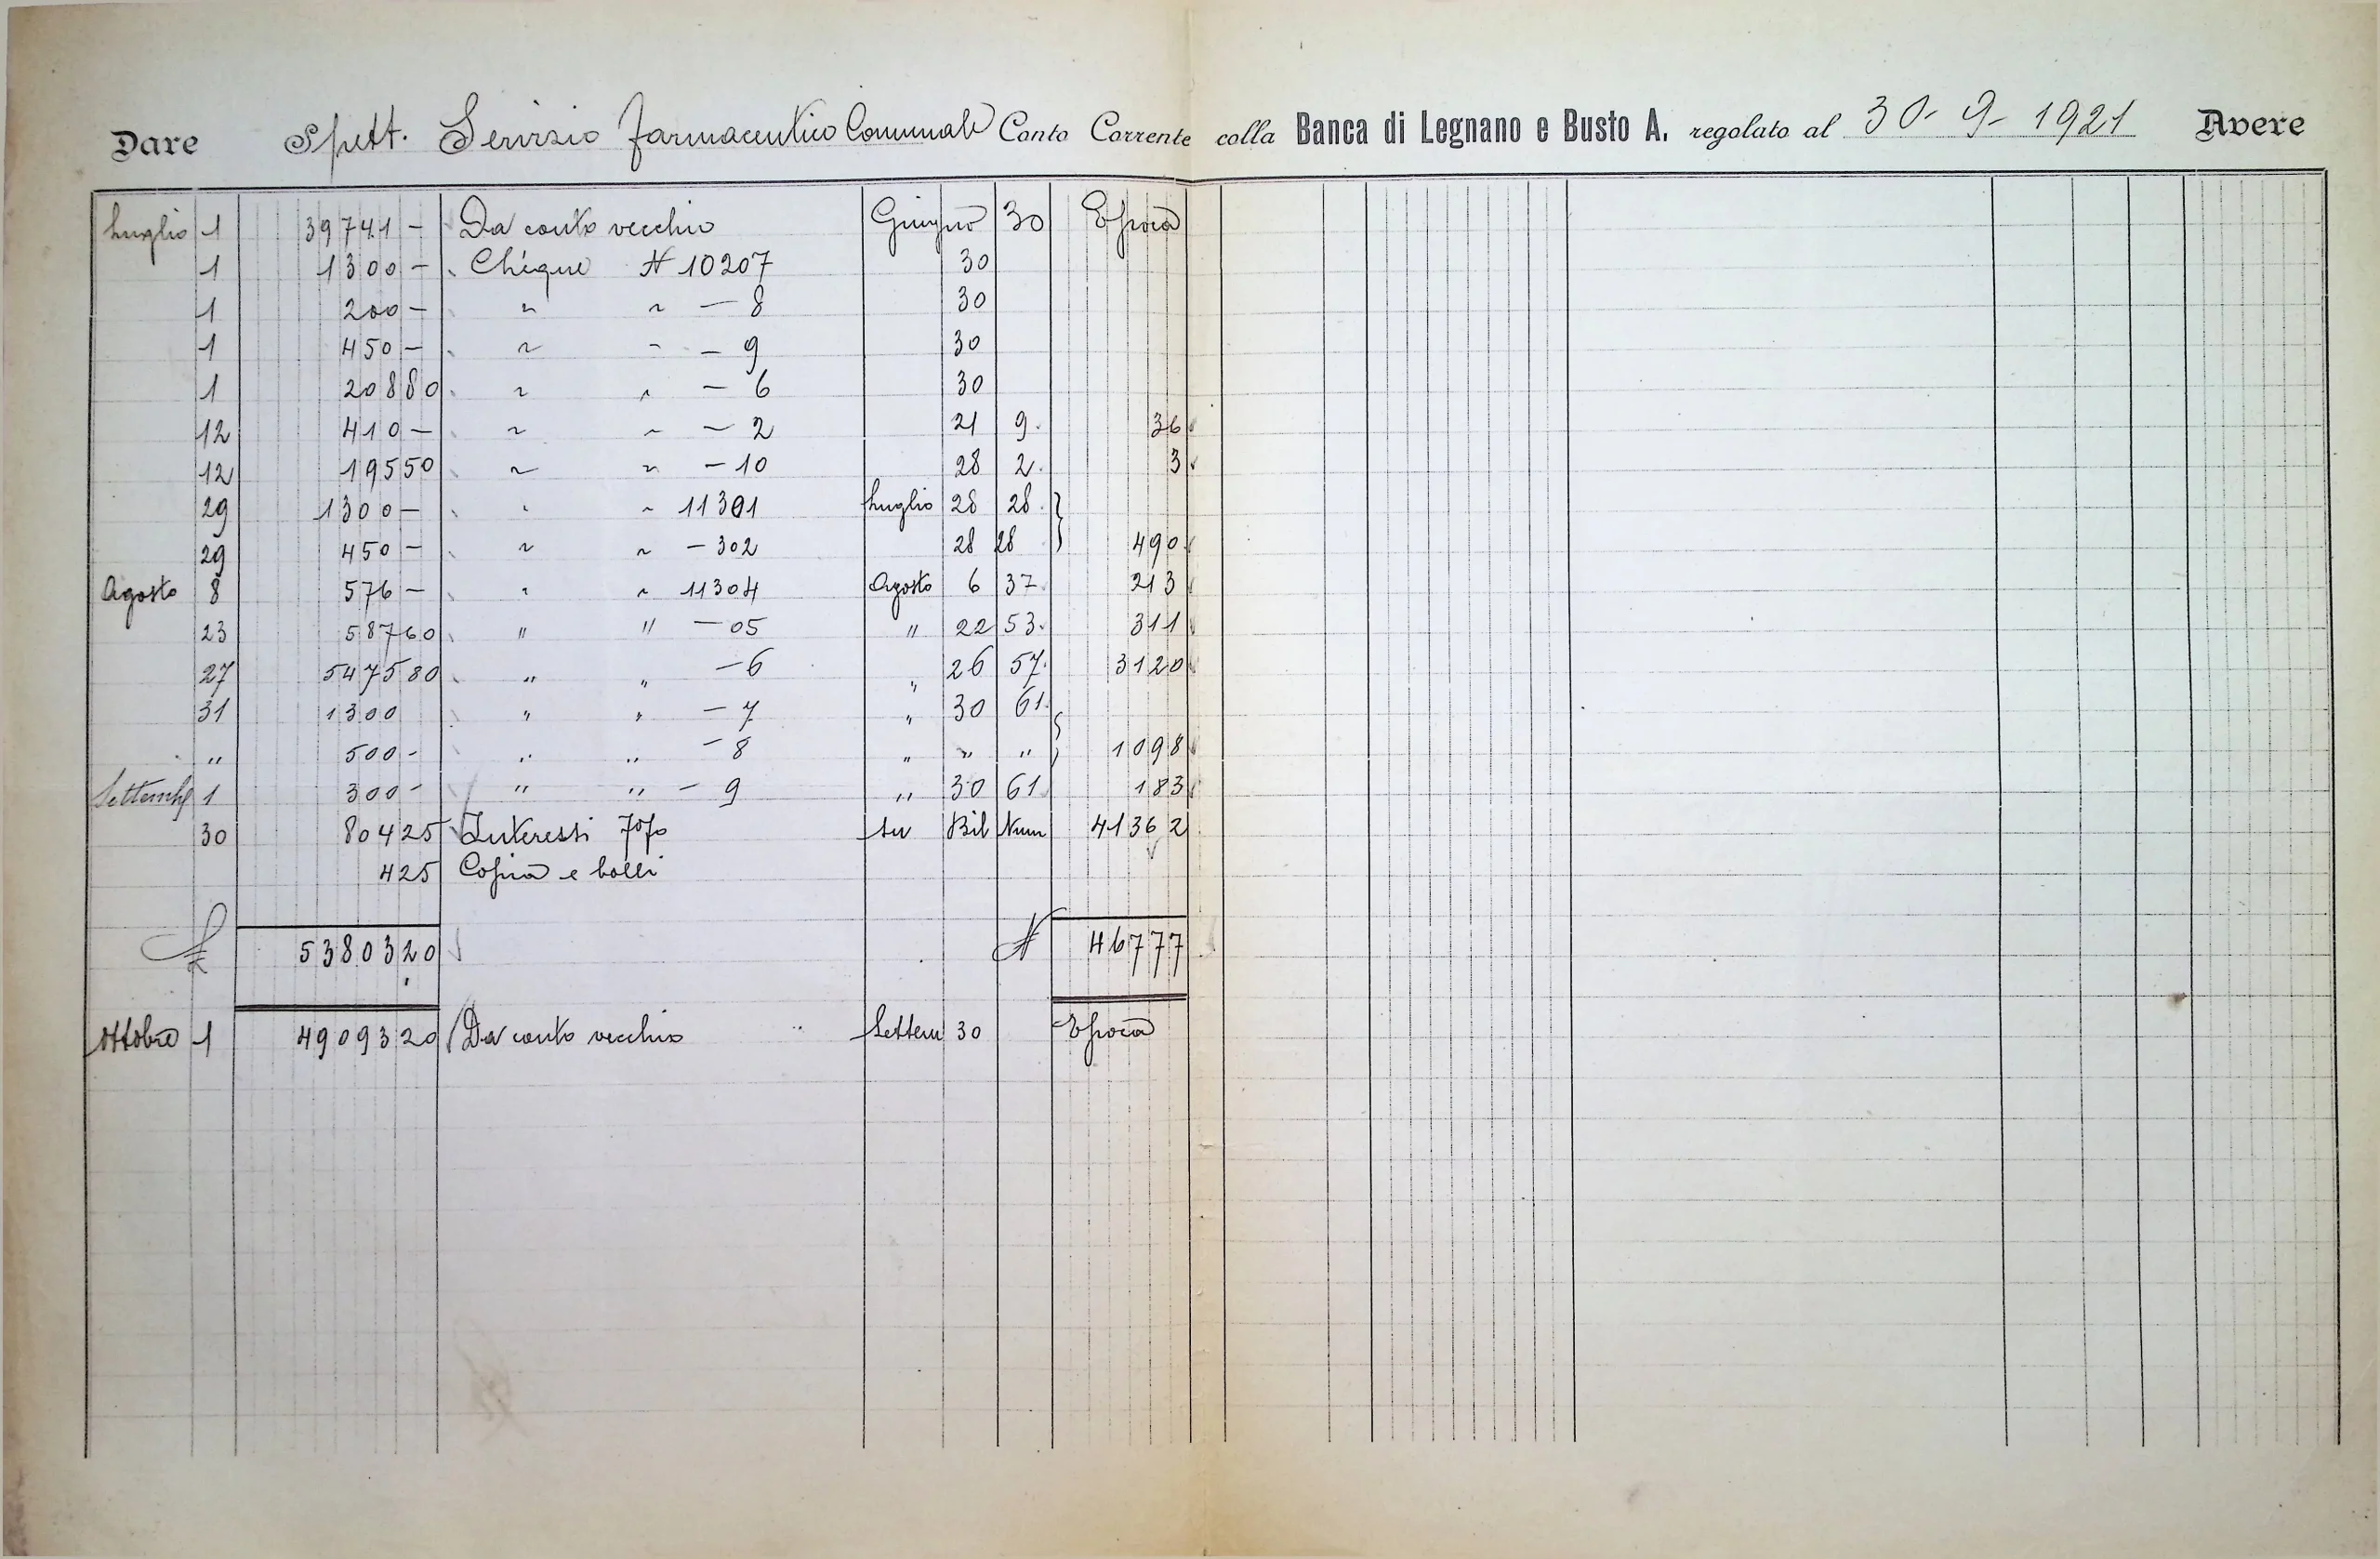 Dare Spett. Servizio Farmaceutico Comunale Conto Corrente colla Banca di Legnano e Busto A. regolato al 30-9-1921 Avere
Luglio 1 39741 - Da conto vecchio Giugno 30 Epoca
1 1300 - Chéque N 10207 30
1 200 - " " - 8 30
1 450 - " " - 9 30
1 208 80 " " - 6 30
12 410 - " " - 2 21 9 36
12 195 50 " " - 10 28 2 3
29 1300 - " " 11301 Luglio 28 28
29 450 - " " - 302 28 28 490
Agosto 8 576 - " " 11304 Agosto 6 37 213
23 587 60 " " - 05 " 22 53 311
27 5475 80 " " - 6 " 26 57 3120
31 1300 " " - 7 " 30 61
" 500 - " " - 8 " " " 1098
Settembre 1 300 - " " - 9 " 30 61 183
30 804 25 Interessi 7% su Bil Num 41362
4 25 Copia e bolli
53803 20 N 46777
Ottobre 1 49093 20 Da conto vecchio Settem 30 Epoca